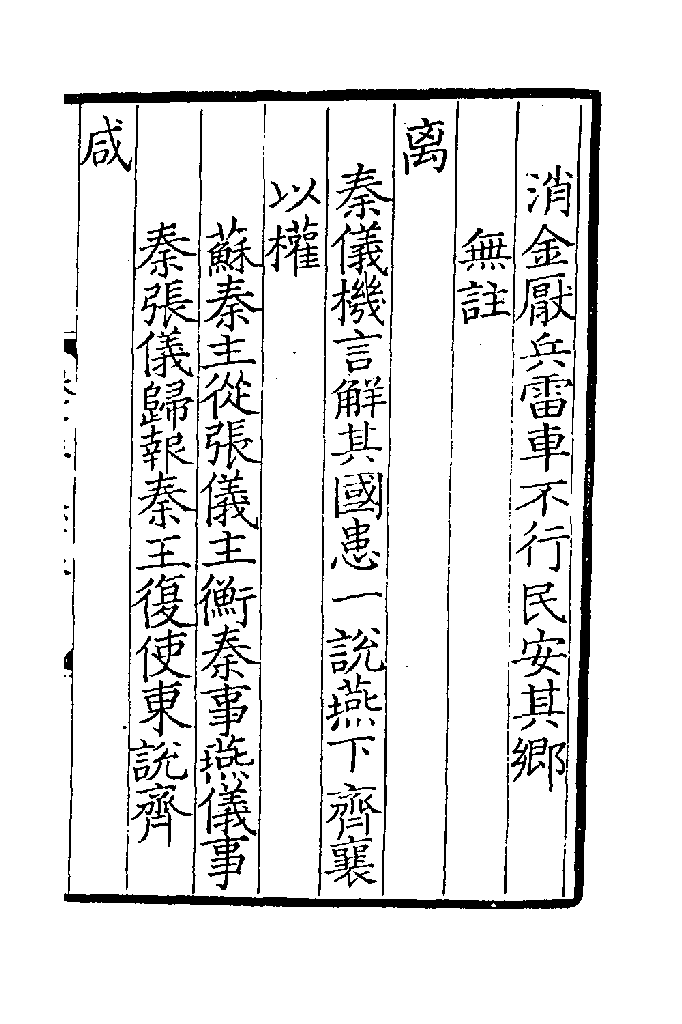 消金厭兵雷車不行民安其鄉
無註
离
秦儀機言解其國患一說燕下齊襄
以權
蘇秦主從張儀主衡秦事燕儀事
秦張儀歸報秦王復使東說齊
咸